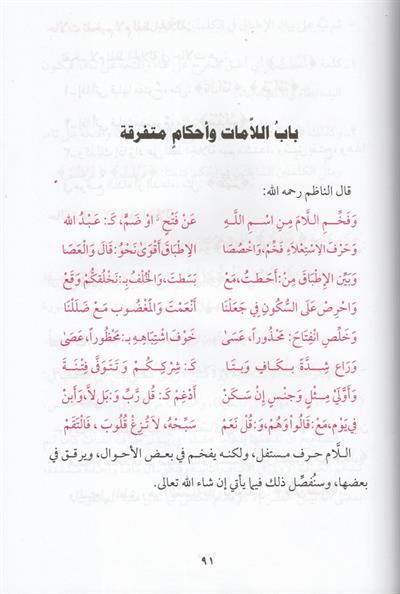 بابُ اللاَّمات وأحكامٍ متفرقة
قال الناظم رحمه الله:
وَفَخِّمِ اللاَّمَ مِنِ اسْمِ اللهِ عَنْ فَتْحٍ اوْ ضَمٍّ، كَـ: عَبْدُ الله
وَحَرْفَ الاِسْتِعْلاَءِ فَخِّمْ، وَاخْصُصَا الاِطْبَاقَ أَقْوَى نَحْوُ: قَالَ وَالْعَصَا
وَبَيِّنِ الإِطْبَاقَ مِنْ: أَحَطتُ، مَعْ بَسَطتَ، وَالْخُلْفُ بِـ: نَخْلُقكُّمْ وَقَعْ
وَاحْرِصْ عَلَى السُّكُونِ فِي جَعَلْنَا أَنْعَمْتَ وَالْمَغْضُوبِ مَعْ ضَلَلْنَا
وَخَلِّصِ انْفِتَاحَ: مَحْذُوراً، عَسَى خَوْفَ اشْتِبَاهِهِ بـ: مَحْظُوراً، عَصَى
وَرَاعِ شِدَّةً بِكَافٍ وَبِتَا كَـ: شِرْكِكُمْ وَتَتَوَفَّى فِتْنَةَ
وَأَوَّلَيْ مِثْلٍ وَجِنْسٍ إِنْ سَكَنْ أَدْغِمْ كَـ: قُل رَّبِّ وَ: بَل لاَّ، وَأَبِنْ
فِي يَوْمِ، مَعْ: قَالُوا وَهُمْ، وَ: قُلْ نَعَمْ سَبِّحْهُ، لاَ تُزِغْ قُلُوبَ، فَالْتَقَمْ
اللَّام حرف مستفل، ولكنه يفخم في بعض الأحوال، ويرقق في
بعضها، وسنُفصِّل ذلك فيما يأتي إن شاء الله تعالى.
٩١